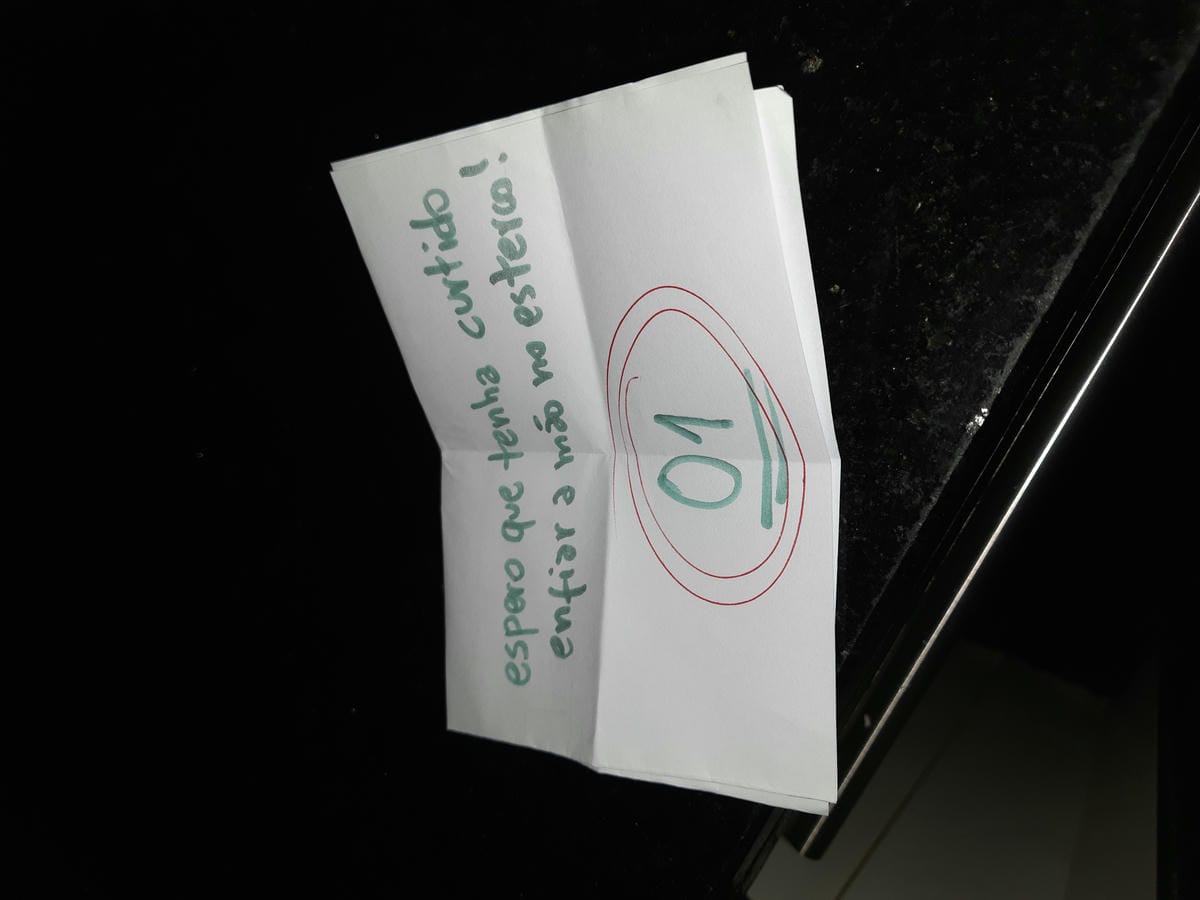 espero que tenha curtido
enfiar a mão no esterco!
01